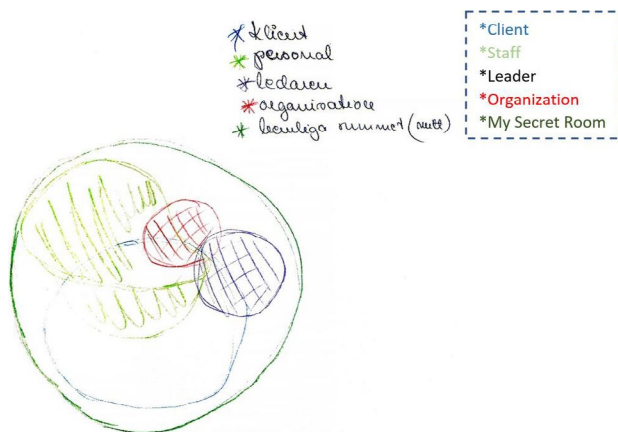 *Klient
*personal
*ledaren
*organisationen
*hemliga rummet (mitt)
*Client
*Staff
*Leader
*Organization
*My Secret Room